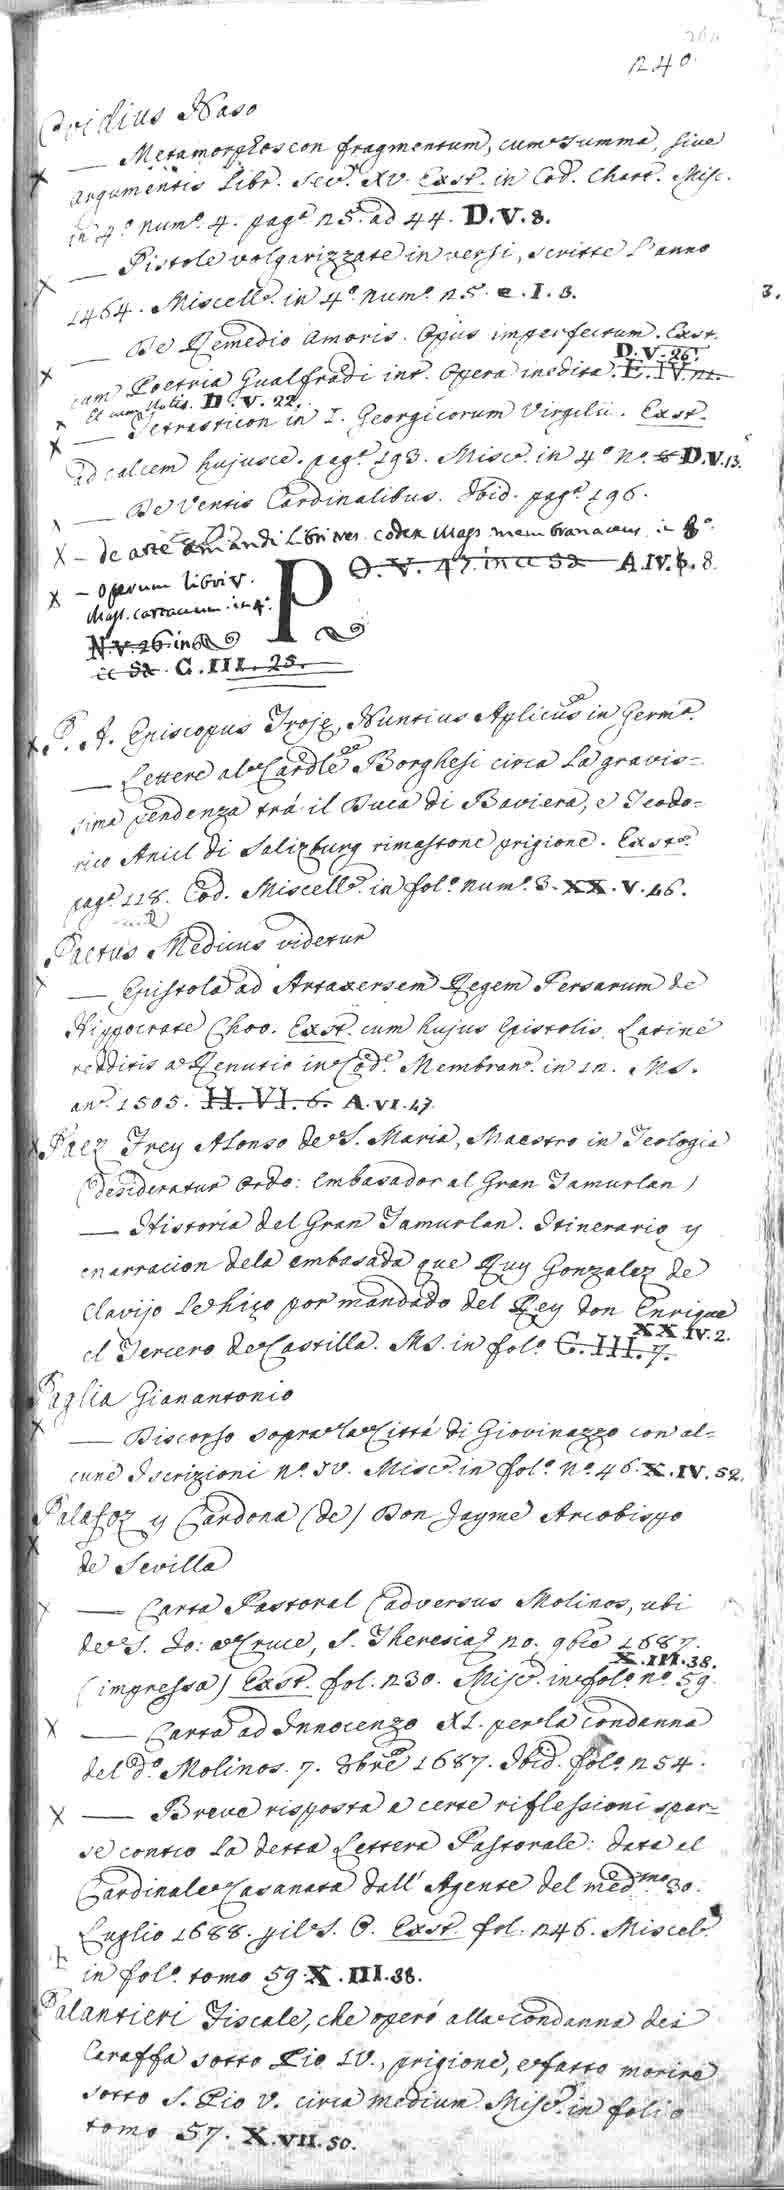 240.
Ovidius Naso
— Metamorphoseon fragmentum, cum summa, sive
argumentis Libr. sec. XV. Exst. in Cod. Chart. Misc.
in 4.º num.º 4. pag.ª 25. ad 44. D.V.8.
— Pistole volgarizzate in versi, scritte l'anno
1464. Miscell.ª in 4.º num.º 25. e.I.3.
3.
— De Remedio Amoris. Opus imperfectum. Exst.
D.V.26.
cum Poetria Gualfradi int. Opera inedita. E.IV.21.
Et cum Notis. D.V.22.
— Tetrasticon in I. Georgicorum Virgilii. Exst.
ad calcem hujusce. pag.ª 193. Misc. in 4.º n.º D.V.13.
— De Ventis Cardinalibus. Ibid. pag.ª 196.
— de arte amandi Libri tres. codex Magl. membranaceus in 8.º
O.V.47. in cc 52 A.IV. 8.
— operum libri V.
Magl. cartaceum in 4.º
N.V.26. in
cc 52. C.III.25.
P
P. A. Episcopus Troję, Nuntius Aplicus in Germ.ª
— Lettere al Cardle Borghesi circa la gravis=
sima pendenza trá il Duca di Baviera, e Teodo=
rico Anicl di Salizburg rimastone prigione. Exst.
pag.ª 118. Cod. Miscell.º in fol.º num.º 3. XX.V.46.
Pactus Medicus videtur
— Epistola ad Artaxersem Regem Persarum de
Hippocrate Choo. Exst. cum hujus Epistolis Latiné
redditis a Renutio in Cod. Membran.º in 12. MS.
an.º 1505. H.VI.6. A.VI.47.
Paez Frey Alonso de S. Maria, Maestro in Teologia
(desideratur Ordo: Embasador al Gran Tamurlan)
— Historia del Gran Tamurlan. Itinerario y
enarracion dela embasada que Ruy Gonzalez de
Clavijo Le hiço por mandado del Rey don Enrique
XX.IV.2.
el Tercero de Castilla. MS. in fol.º C.III.7.
Paglia Gianantonio
— Discorso sopra la Cittá di Giovinazzo con al=
cune Iscrizioni n.º IV. Misc. in fol.º n.º 46. X.IV.52.
Palafox y Cardona (de) Don Jayme Arcobispo
de Sevilla
— Carta Pastoral (adversus Molinos, ubi
de S. Jo: a Cruce, S. Theresia) 20. 9bre 1687.
X.III.38.
(impressa) Exst. fol. 230. Misc. in fol.º n.º 59.
— Carta ad Innocenzo XI. per la condanna
del d.º Molinos. 7. 8bre 1687. Ibid. fol.º 254.
— Breve risposta a certe riflessioni spar=
se contro la detta Lettera Pastorale: data al
Cardinale Casanata dall' Agente del med.mo 30.
Luglio 1688. pil S. O. Exst. fol. 246. Miscel.
in fol.º tomo 59. X.III.38.
Palantieri Fiscale, che operó alla condanna dei
Caraffa sotto Pio IV., prigione, e fatto morire
sotto S. Pio V. circa medium. Misc. in folio
tomo 57. X.VII.50.